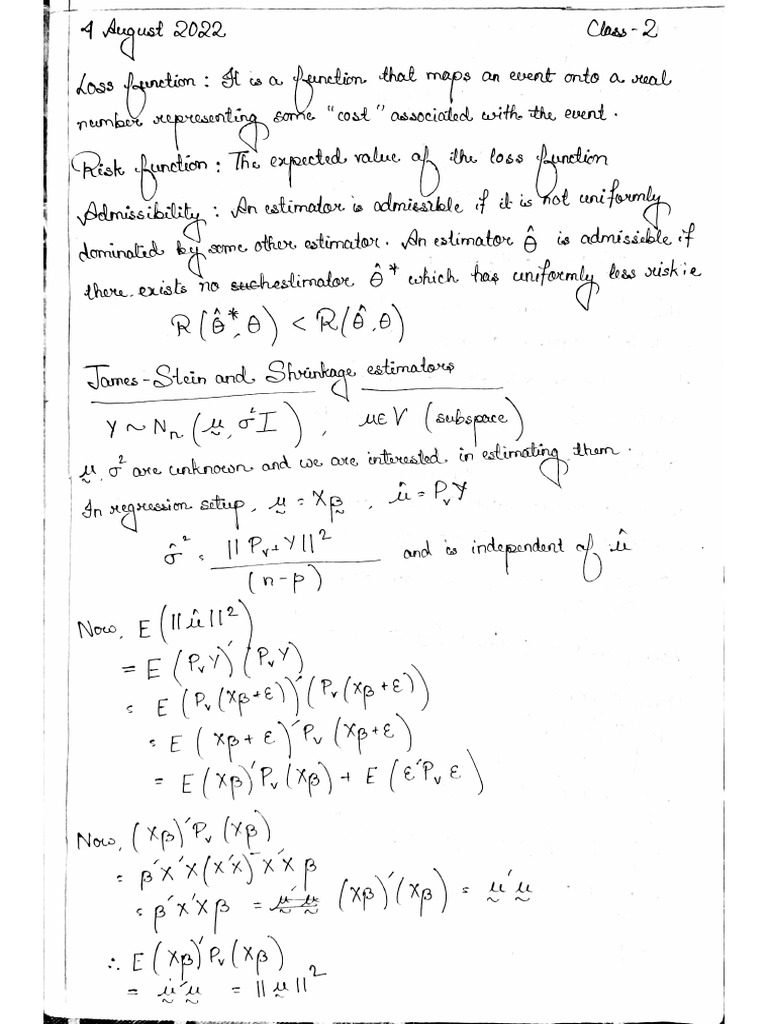 4 August 2022 Class-2
Loss function : It is a function that maps an event onto a real
number representing some "cost" associated with the event.
Risk function : The expected value of the loss function
Admissibility : An estimator is admissible if it is not uniformly
dominated by some other estimator. An estimator θ̂ is admissible if
there exists no such estimator θ̂* which has uniformly less risk i.e
R(θ̂*, θ) < R(θ̂, θ)
James-Stein and Shrinkage estimators
Y ~ Nₙ(μ, σ²I), μ∈V (subspace)
μ, σ² are unknown and we are interested in estimating them.
In regression setup, μ = Xβ, μ̂ = PᵥY
σ̂² = ||Pᵥ⊥Y||² / (n-p) and is independent of μ̂
Now, E(||μ̂||²)
= E(PᵥY)′(PᵥY)
= E(Pᵥ(Xβ+ε))′(Pᵥ(Xβ+ε))
= E(Xβ+ε)′Pᵥ(Xβ+ε)
= E(Xβ)′Pᵥ(Xβ) + E(ε′Pᵥε)
Now, (Xβ)′Pᵥ(Xβ)
= β′X′X(X′X)⁻X′Xβ
= β′X′Xβ = μ′μ (Xβ)′(Xβ) = μ′μ
∴ E(Xβ)′Pᵥ(Xβ)
= μ′μ = ||μ||²